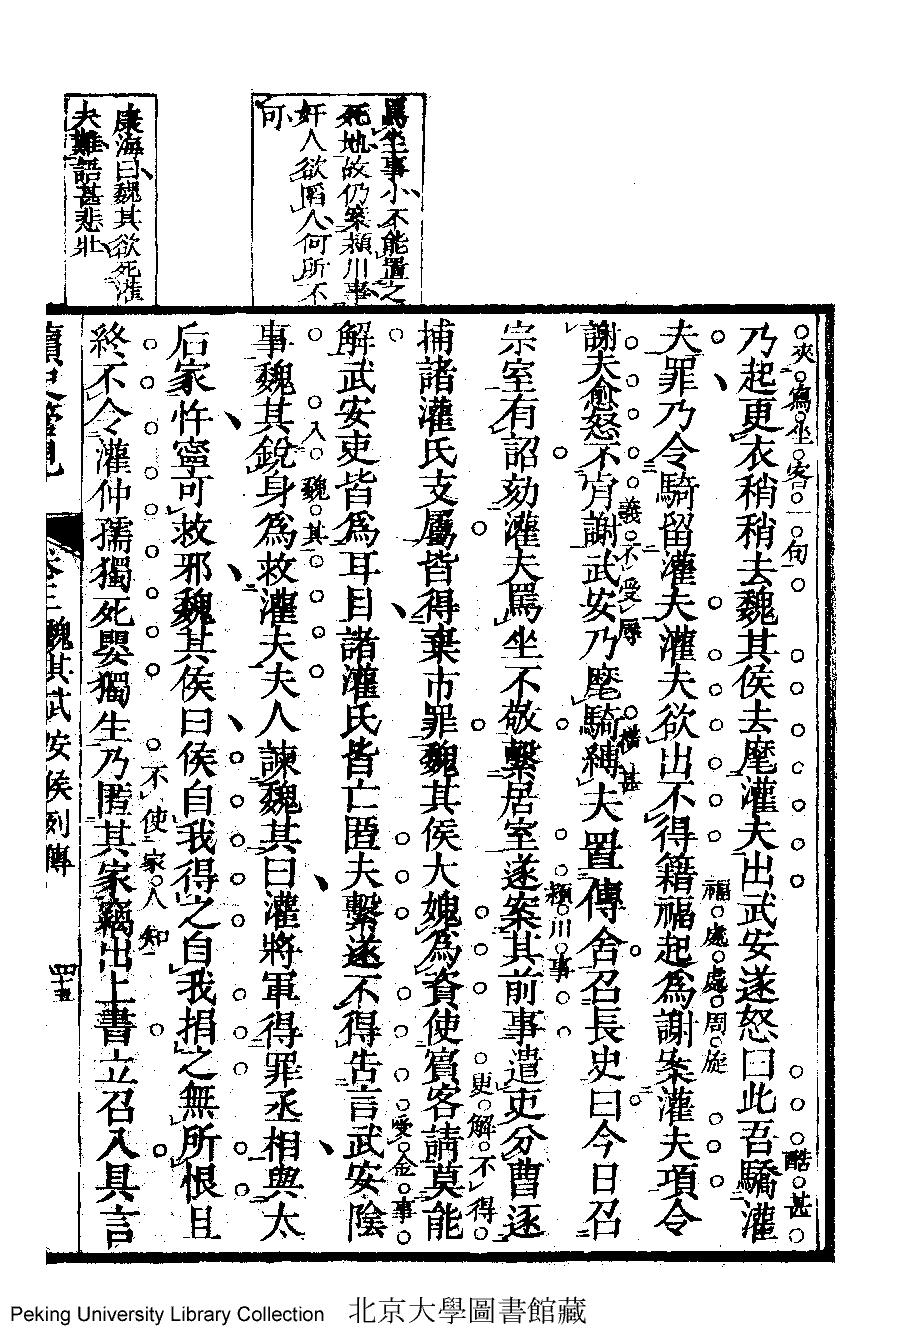 罵坐事小不能置之
死地故仍案頴川事
奸人欲陷人何所不
可
康海曰魏其欲死灌
夫難語甚悲壯
夾寫坐客一句
酷甚
乃起更衣稍稍去魏其侯去麾灌夫出武安遂怒曰此吾驕灌
福處處周旋
夫罪乃令騎留灌夫灌夫欲出不得籍福起爲謝案灌夫項令
義不受辱
橫甚
謝夫愈怒不肯謝武安乃麾騎縛夫置傳舍召長史曰今日召
頴川事
宗室有詔劾灌夫罵坐不敬繫居室遂案其前事遣吏分曹逐
更解不得
捕諸灌氏支屬皆得棄市罪魏其侯大媿爲資使賓客請莫能
受金事
解武安吏皆爲耳目諸灌氏皆亡匿夫繫遂不得告言武安陰
入魏其
事魏其銳身爲救灌夫夫人諫魏其曰灌將軍得罪丞相與太
后家忤寧可救邪魏其侯曰侯自我得之自我捐之無所恨且
不使家人知
終不令灌仲孺獨死嬰獨生乃匿其家竊出上書立召入具言
讀史管見 卷三 魏其武安侯列傳 四十五
Peking University Library Collection 北京大學圖書館藏